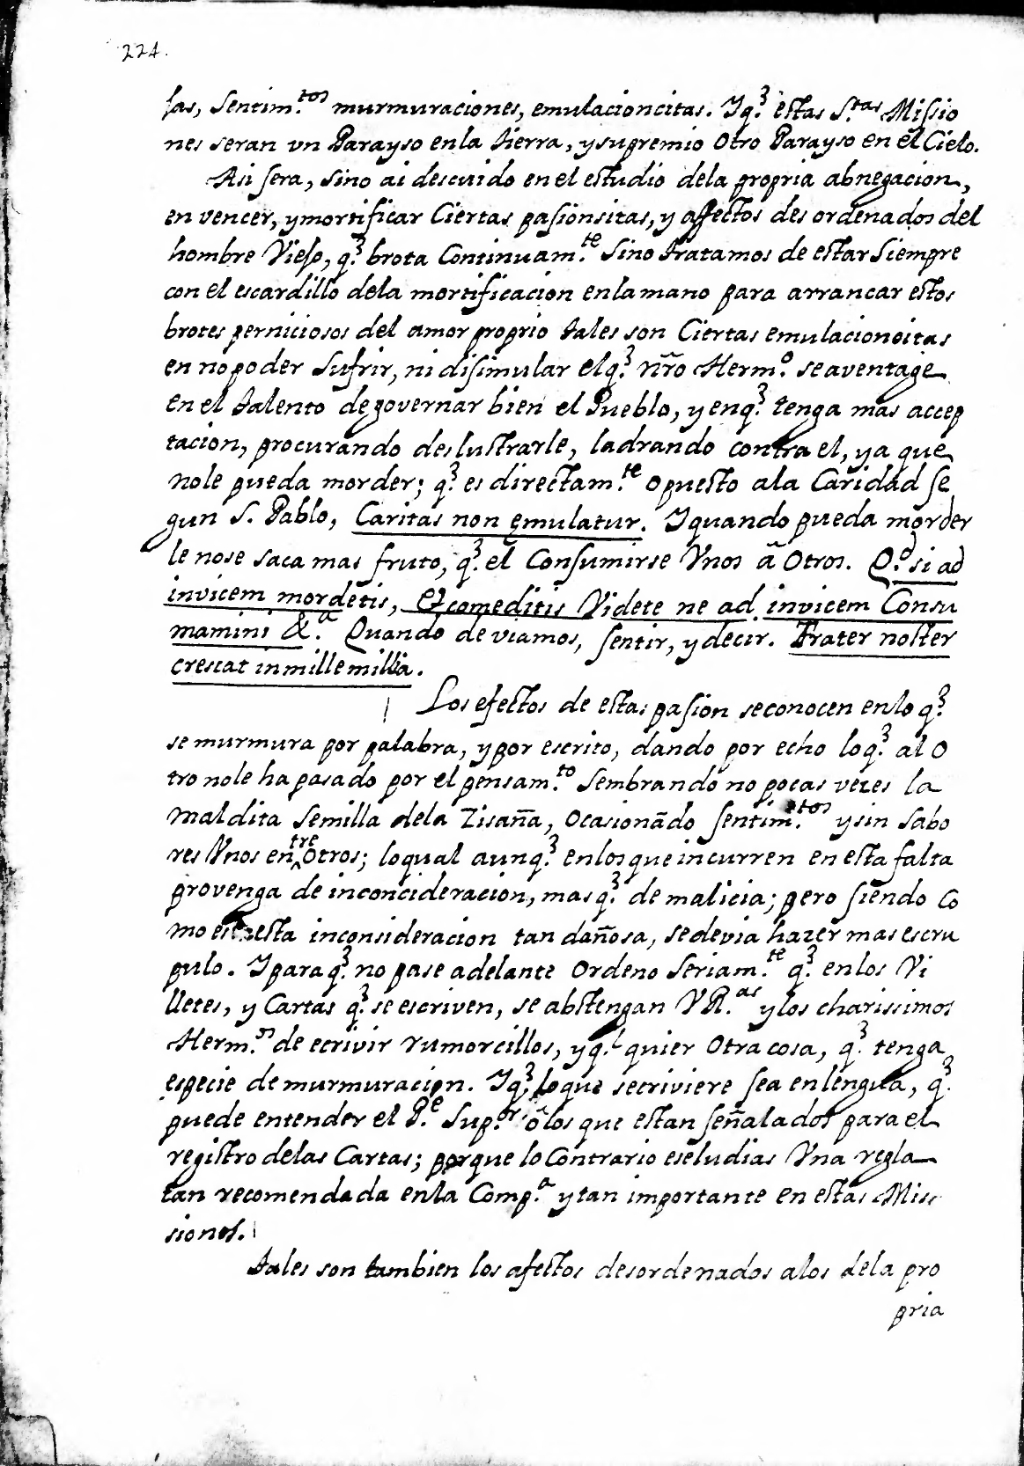 224.
sas, Sentim.tos murmuraciones, emulacioncitas. Y q.e estas S.tas Missio
nes seran vn Parayso en la tierra, y su premio Otro Parayso en el Cielo.
Asi sera, sino ai descuido en el estudio dela propria abnegacion,
en vencer, y mortificar Ciertas pasionsitas, y affectos desordenados del
hombre Viejo, q.e brota Continuam.te Sino tratamos de estar Siempre
con el escardillo dela mortificacion en la mano para arrancar estos
brotes perniciosos del amor proprio tales son Ciertas emulacioncitas
en no poder Sufrir, ni disimular el q.e nr̃o Herm.o se aventage
en el talento de governar bien el Pueblo, y en q.e tenga mas accep
tacion, procurando deslustrarle, ladrando contra el, ya que
no le pueda morder; q.e es directam.te opuesto ala Caridad se
gun S. Pablo, Caritas non ęmulatur. Y quando pueda morder
le nose saca mas fruto, q.e el Consumirse Vnos ã Otros. Q.d si ad
invicem mordetis, et comeditis Videte ne ad invicem Consu
mamini &.a Quando deviamos, sentir, y decir. Frater noster
crescat in mille millia.
Los efectos de esta pasion se conocen en lo q.e
se murmura por palabra, y por escrito, dando por echo lo q.e al O
tro nole ha pasado por el pensam.to Sembrando no pocas vezes la
maldita Semilla dela Zisaña, Ocasionãdo sentim.tos y sin sabo
res Vnos entre Otros; lo qual aunq.e en los que incurren en esta falta
provenga de inconcideracion, mas q.e de malicia; pero siendo Co
mo es esta inconsideracion tan dañosa, se devia hazer mas escru
pulo. Y para q.e no pase adelante Ordeno Seriam.te q.e en los Vi
lletes, y Cartas q.e se escriven, se abstengan V R.as y los charissimos
Herm.os de ecrivir rumorcillos, y q.l quier Otra cosa, q.e tenga
especie de murmuracion. Y q.e lo que secriviere sea en lengua, q.e
puede entender el P.e Sup.or õ los que estan señalados para el
registro delas Cartas; porque lo Contrario es eludias Vna regla
tan recomendada en la Comp.a y tan importante en estas Mis
siones.
Tales son tambien los afectos desordenados alos dela pro
pria